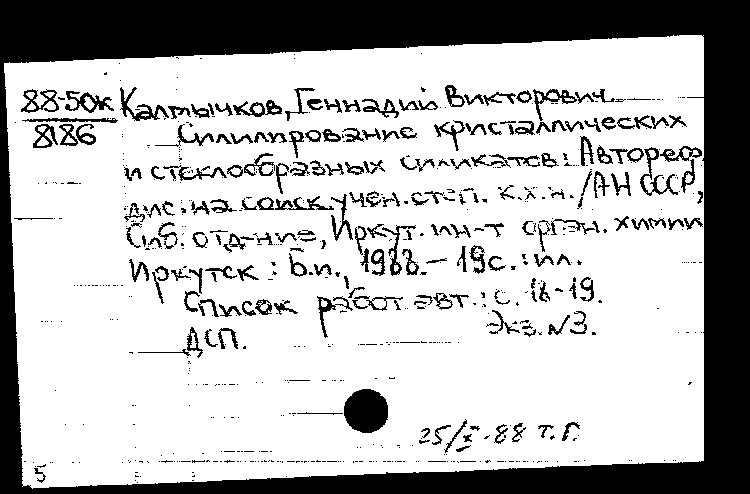 88-50к Калмычков, Геннадий Викторович.
8186 Силилирование кристаллических
и стеклообразных силикатов: Автореф.
дис. на соиск. учен. степ. к.х.н. / АН СССР,
Сиб. отд-ние, Иркут. ин-т орган. химии
Иркутск : Б.и., 1988. - 19с. : ил.
Список работ авт.: с. 18-19.
ДСП. Экз. N3.
25/X-88 т. Г.
5